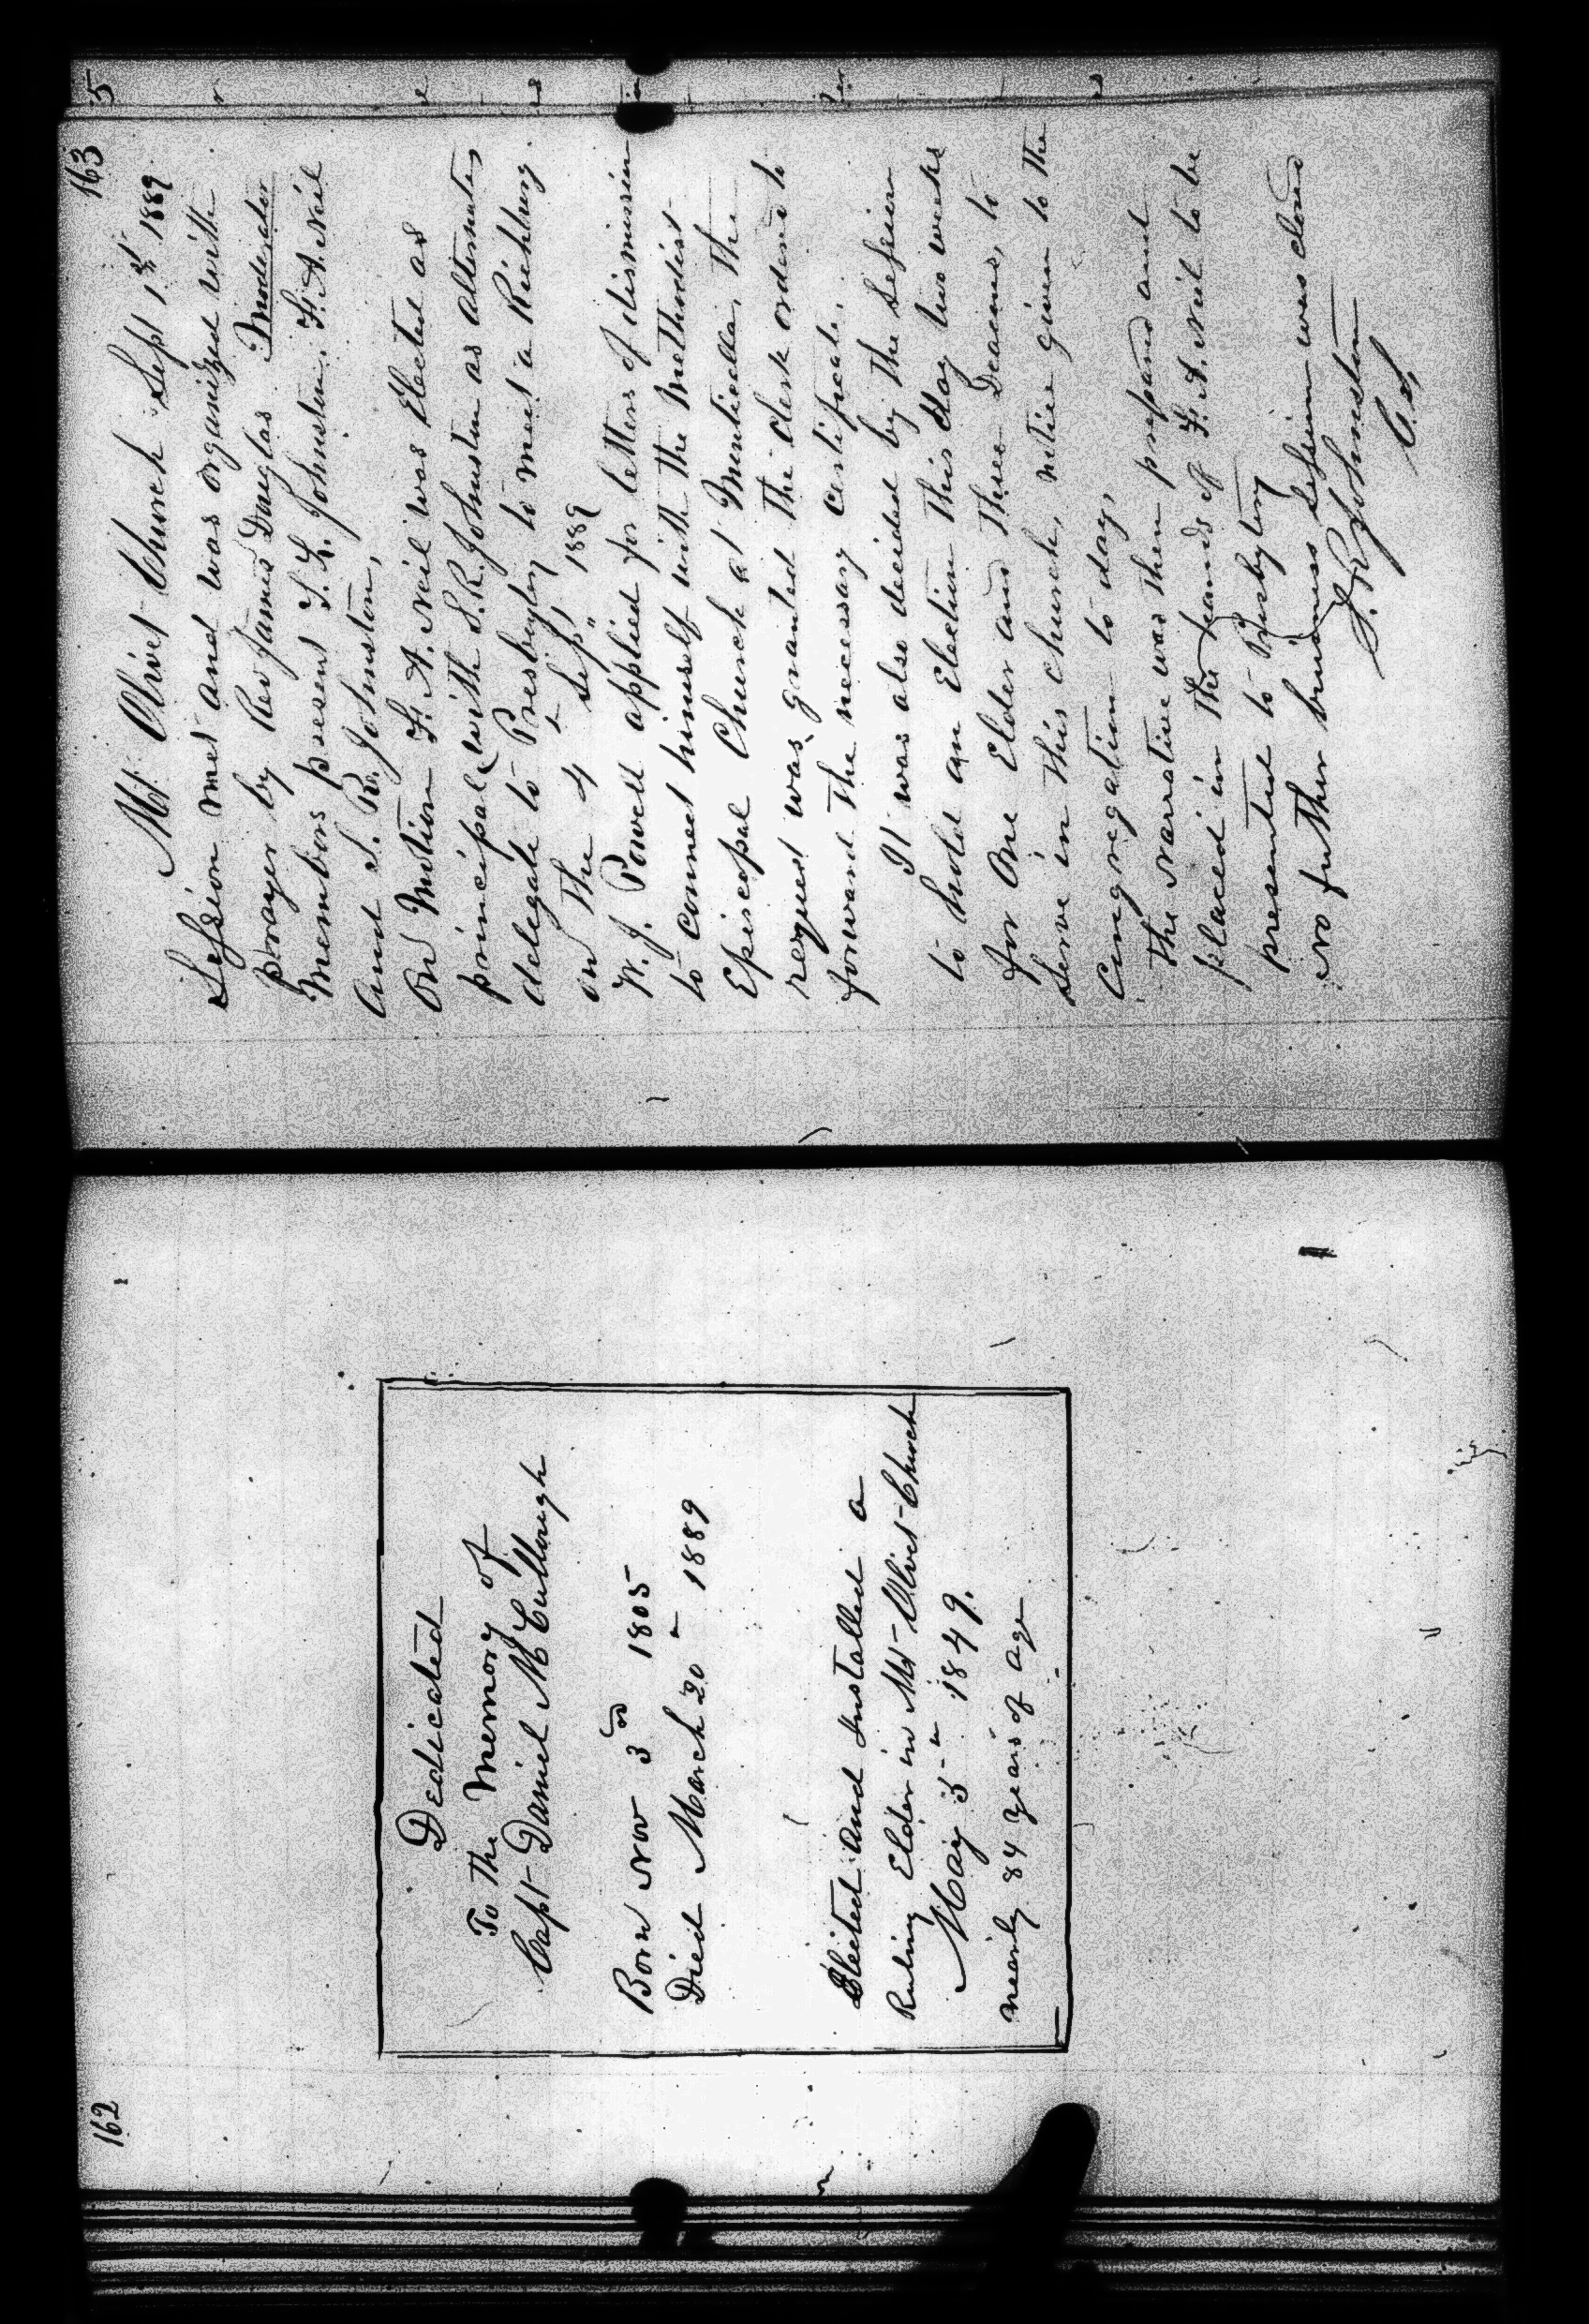 162
Dedicated
To the Memory of
Capt Daniel McCullough
Born Nov 3rd 1805
Died March 20" 1889
Elected and Installed a
Ruling Elder in Mt Olivet Church
May 5" 1849.
nearly 84 years of age
163
Mt Olivet Church Sept 1st 1889
Session met and was organized with
prayer by Rev James Douglas Moderator
Members present S. L. Johnston. F. A. Neil
and S. R. Johnston,
On Motion F. A. Neil was Elected as
principal with S. R. Johnston as alternates
delegate to Presbytery to meet a Richburg.
on The 4" Sept 1889
W. J. Powell applied for letters of dismission
to connect himself with the Methodist
Episcopal Church at Monticello, The
request was granted The Clerk ordered to
forward The necessary certificate.
It was also decided by The Session
to hold an Election This day two weeks
for One Elder and Three Deacons, to
Serve in This church, notice given to The
Congregation to day,
The Narrative was Then prepared and
placed in The hands of F. A. Neil to be
presented to Presbytery
No further business Session was closed
S. R. Johnston
C. S.
5